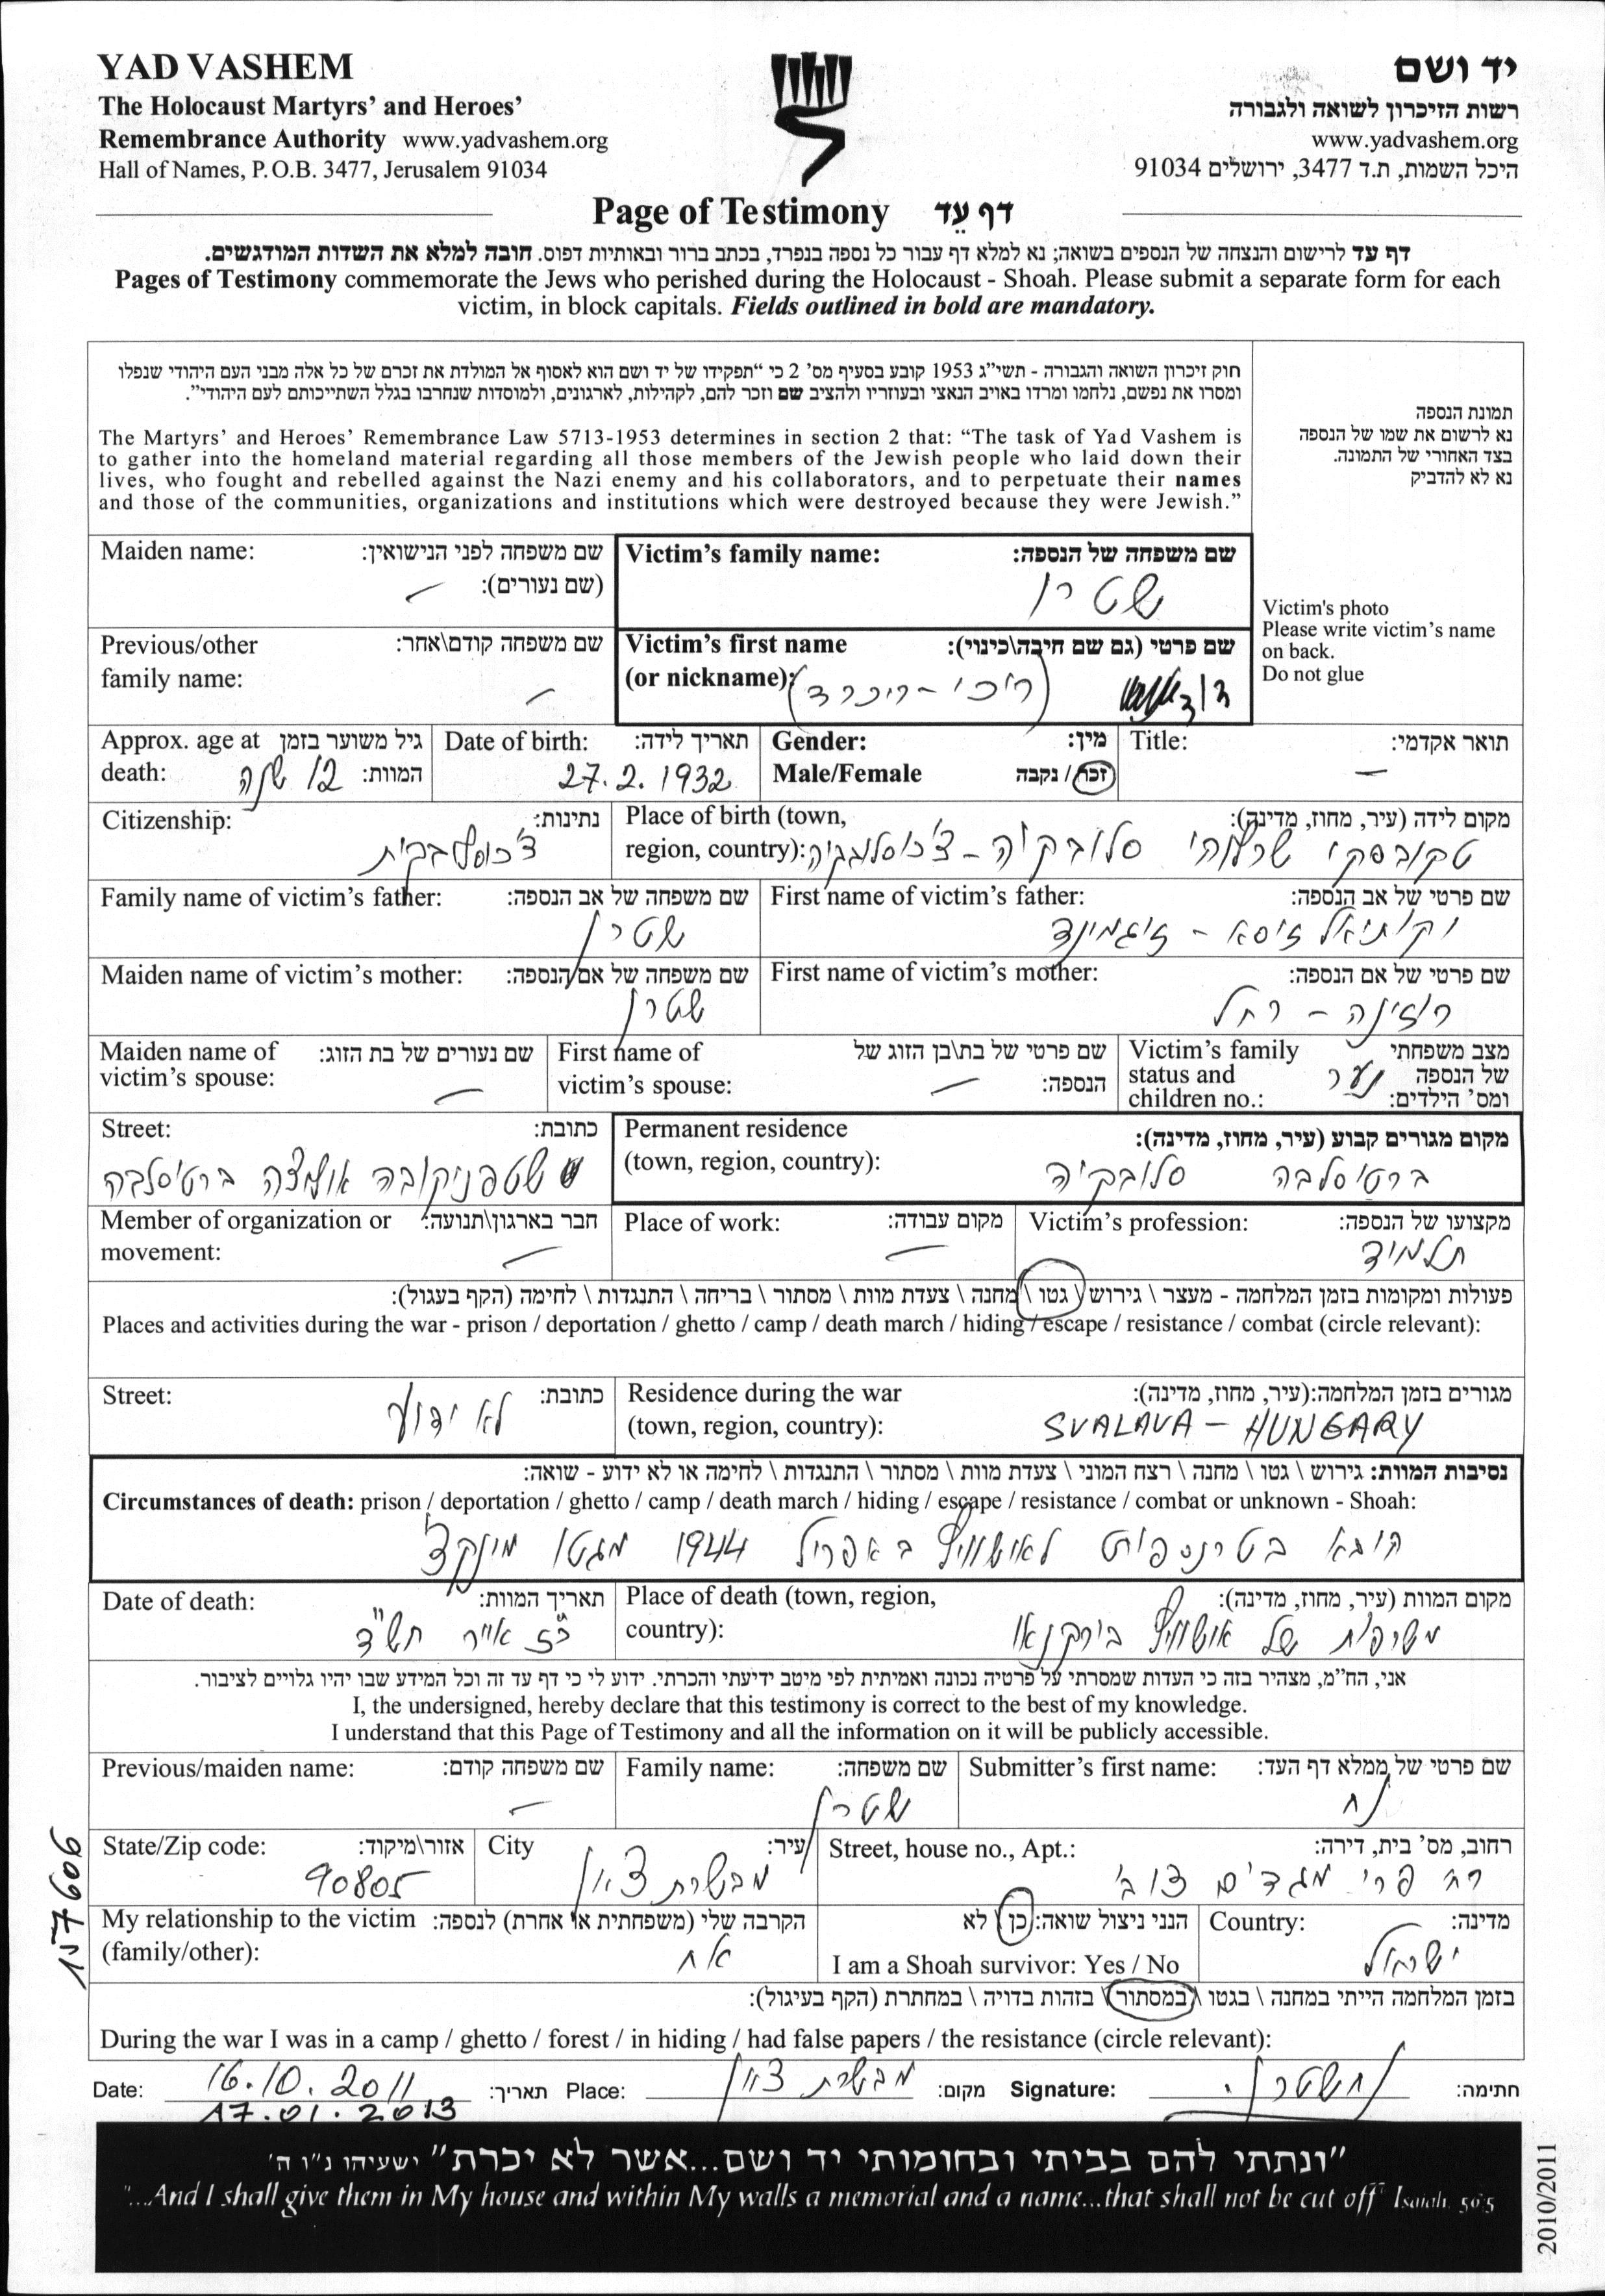 YAD VASHEM
The Holocaust Martyrs' and Heroes'
Remembrance Authority www.yadvashem.org
Hall of Names, P.O.B. 3477, Jerusalem 91034
יד ושם
רשות הזיכרון לשואה ולגבורה
www.yadvashem.org
היכל השמות, ת.ד 3477, ירושלים 91034
Page of Testimony דף עֵד
דף עד לרישום והנצחה של הנספים בשואה; נא למלא דף עבור כל נספה בנפרד, בכתב ברור ובאותיות דפוס. חובה למלא את השדות המודגשים.
Pages of Testimony commemorate the Jews who perished during the Holocaust - Shoah. Please submit a separate form for each
victim, in block capitals. Fields outlined in bold are mandatory.
חוק זיכרון השואה והגבורה - תשי"ג 1953 קובע בסעיף מס' 2 כי "תפקידו של יד ושם הוא לאסוף אל המולדת את זכרם של כל אלה מבני העם היהודי שנפלו
ומסרו את נפשם, נלחמו ומרדו באויב הנאצי ובעוזריו ולהציב שם וזכר להם, לקהילות, לארגונים, ולמוסדות שנחרבו בגלל השתייכותם לעם היהודי".
The Martyrs' and Heroes' Remembrance Law 5713-1953 determines in section 2 that: "The task of Yad Vashem is
to gather into the homeland material regarding all those members of the Jewish people who laid down their
lives, who fought and rebelled against the Nazi enemy and his collaborators, and to perpetuate their names
and those of the communities, organizations and institutions which were destroyed because they were Jewish."
תמונת הנספה
נא לרשום את שמו של הנספה
בצד האחורי של התמונה.
נא לא להדביק
Victim's photo
Please write victim's name
on back.
Do not glue
Victim's family name: שם משפחה של הנספה:
שטרן
Maiden name: שם משפחה לפני הנישואין:
(שם נעורים): –
Victim's first name שם פרטי (גם שם חיבה\כינוי):
(or nickname): (ריכי - ריכרד)
Previous/other שם משפחה קודם\אחר:
family name: –
Title: תואר אקדמי:
–
Gender: מין:
Male/Female זכר / נקבה
Date of birth: תאריך לידה:
27.2.1932
Approx. age at גיל משוער בזמן
death: המוות: 12 שנה
Place of birth (town, מקום לידה (עיר, מחוז, מדינה):
region, country): סלובקיה - צ'כוסלובקיה
Citizenship: נתינות:
צ'כוסלובקית
First name of victim's father: שם פרטי של אב הנספה:
יקותיאל זיסא - זיגמונד
Family name of victim's father: שם משפחה של אב הנספה:
שטרן
First name of victim's mother: שם פרטי של אם הנספה:
רוזינה - רחל
Maiden name of victim's mother: שם משפחה של אם הנספה:
שטרן
Victim's family מצב משפחתי
status and של הנספה
children no.: ומס' הילדים: נער
First name of שם פרטי של בת\בן הזוג של
victim's spouse: הנספה: –
Maiden name of שם נעורים של בת הזוג:
victim's spouse: –
Permanent residence מקום מגורים קבוע (עיר, מחוז, מדינה):
(town, region, country):
ברטיסלבה סלובקיה
Street: כתובת:
שטפניקובה אוליצה ברטיסלבה
Victim's profession: מקצועו של הנספה:
תלמיד
Place of work: מקום עבודה:
–
Member of organization or חבר בארגון\תנועה:
movement: –
פעולות ומקומות בזמן המלחמה - מעצר \ גירוש \ גטו \ מחנה \ צעדת מוות \ מסתור \ בריחה \ התנגדות \ לחימה (הקף בעגול):
Places and activities during the war - prison / deportation / ghetto / camp / death march / hiding / escape / resistance / combat (circle relevant):
Residence during the war מגורים בזמן המלחמה:(עיר, מחוז, מדינה):
(town, region, country): SVALAVA - HUNGARY
Street: כתובת:
לא ידוע
נסיבות המוות: גירוש \ גטו \ מחנה \ רצח המוני \ צעדת מוות \ מסתור \ התנגדות \ לחימה או לא ידוע - שואה:
Circumstances of death: prison / deportation / ghetto / camp / death march / hiding / escape / resistance / combat or unknown - Shoah:
הובא בטרנספורט לאושוויץ באפריל 1944 מגטו מונקץ'
Place of death (town, region, מקום המוות (עיר, מחוז, מדינה):
country): משרפות של אושוויץ בירקנאו
Date of death: תאריך המוות:
כ"ז אייר תש"ד
אני, הח"מ, מצהיר בזה כי העדות שמסרתי על פרטיה נכונה ואמיתית לפי מיטב ידיעתי והכרתי. ידוע לי כי דף עד זה וכל המידע שבו יהיו גלויים לציבור.
I, the undersigned, hereby declare that this testimony is correct to the best of my knowledge.
I understand that this Page of Testimony and all the information on it will be publicly accessible.
Submitter's first name: שם פרטי של ממלא דף העד:
נח
Family name: שם משפחה:
שטרן
Previous/maiden name: שם משפחה קודם:
–
Street, house no., Apt.: רחוב, מס' בית, דירה:
רח' פרי מגדים
City עיר:
מבשרת ציון
State/Zip code: אזור\מיקוד:
90805
Country: מדינה:
ישראל
הנני ניצול שואה: כן \ לא
I am a Shoah survivor: Yes / No
My relationship to the victim הקרבה שלי (משפחתית או אחרת) לנספה:
(family/other): אח
157606
בזמן המלחמה הייתי במחנה \ בגטו \ במסתור \ בזהות בדויה \ במחתרת (הקף בעיגול):
During the war I was in a camp / ghetto / forest / in hiding / had false papers / the resistance (circle relevant):
Date: 16.10.2011 תאריך: Place: מבשרת ציון מקום: Signature: נח שטרן חתימה:
17.01.2013
"ונתתי להם בביתי ובחומותי יד ושם...אשר לא יכרת" ישעיהו נ"ו ה'
"...And I shall give them in My house and within My walls a memorial and a name...that shall not be cut off" Isaiah, 56:5
2010/2011